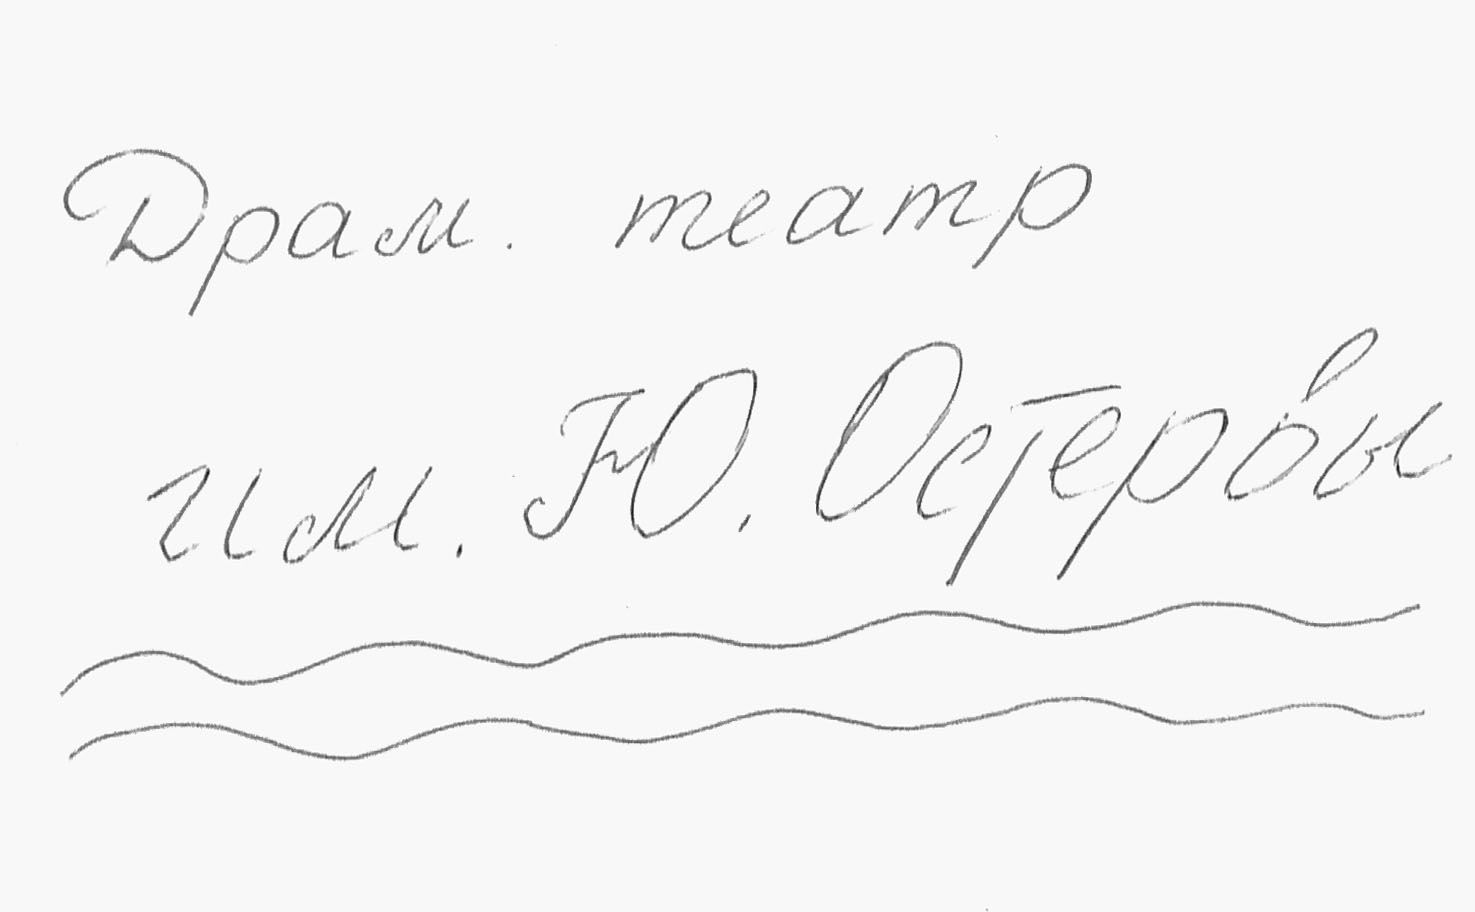 Драм. театр
им. Ю. Остервы